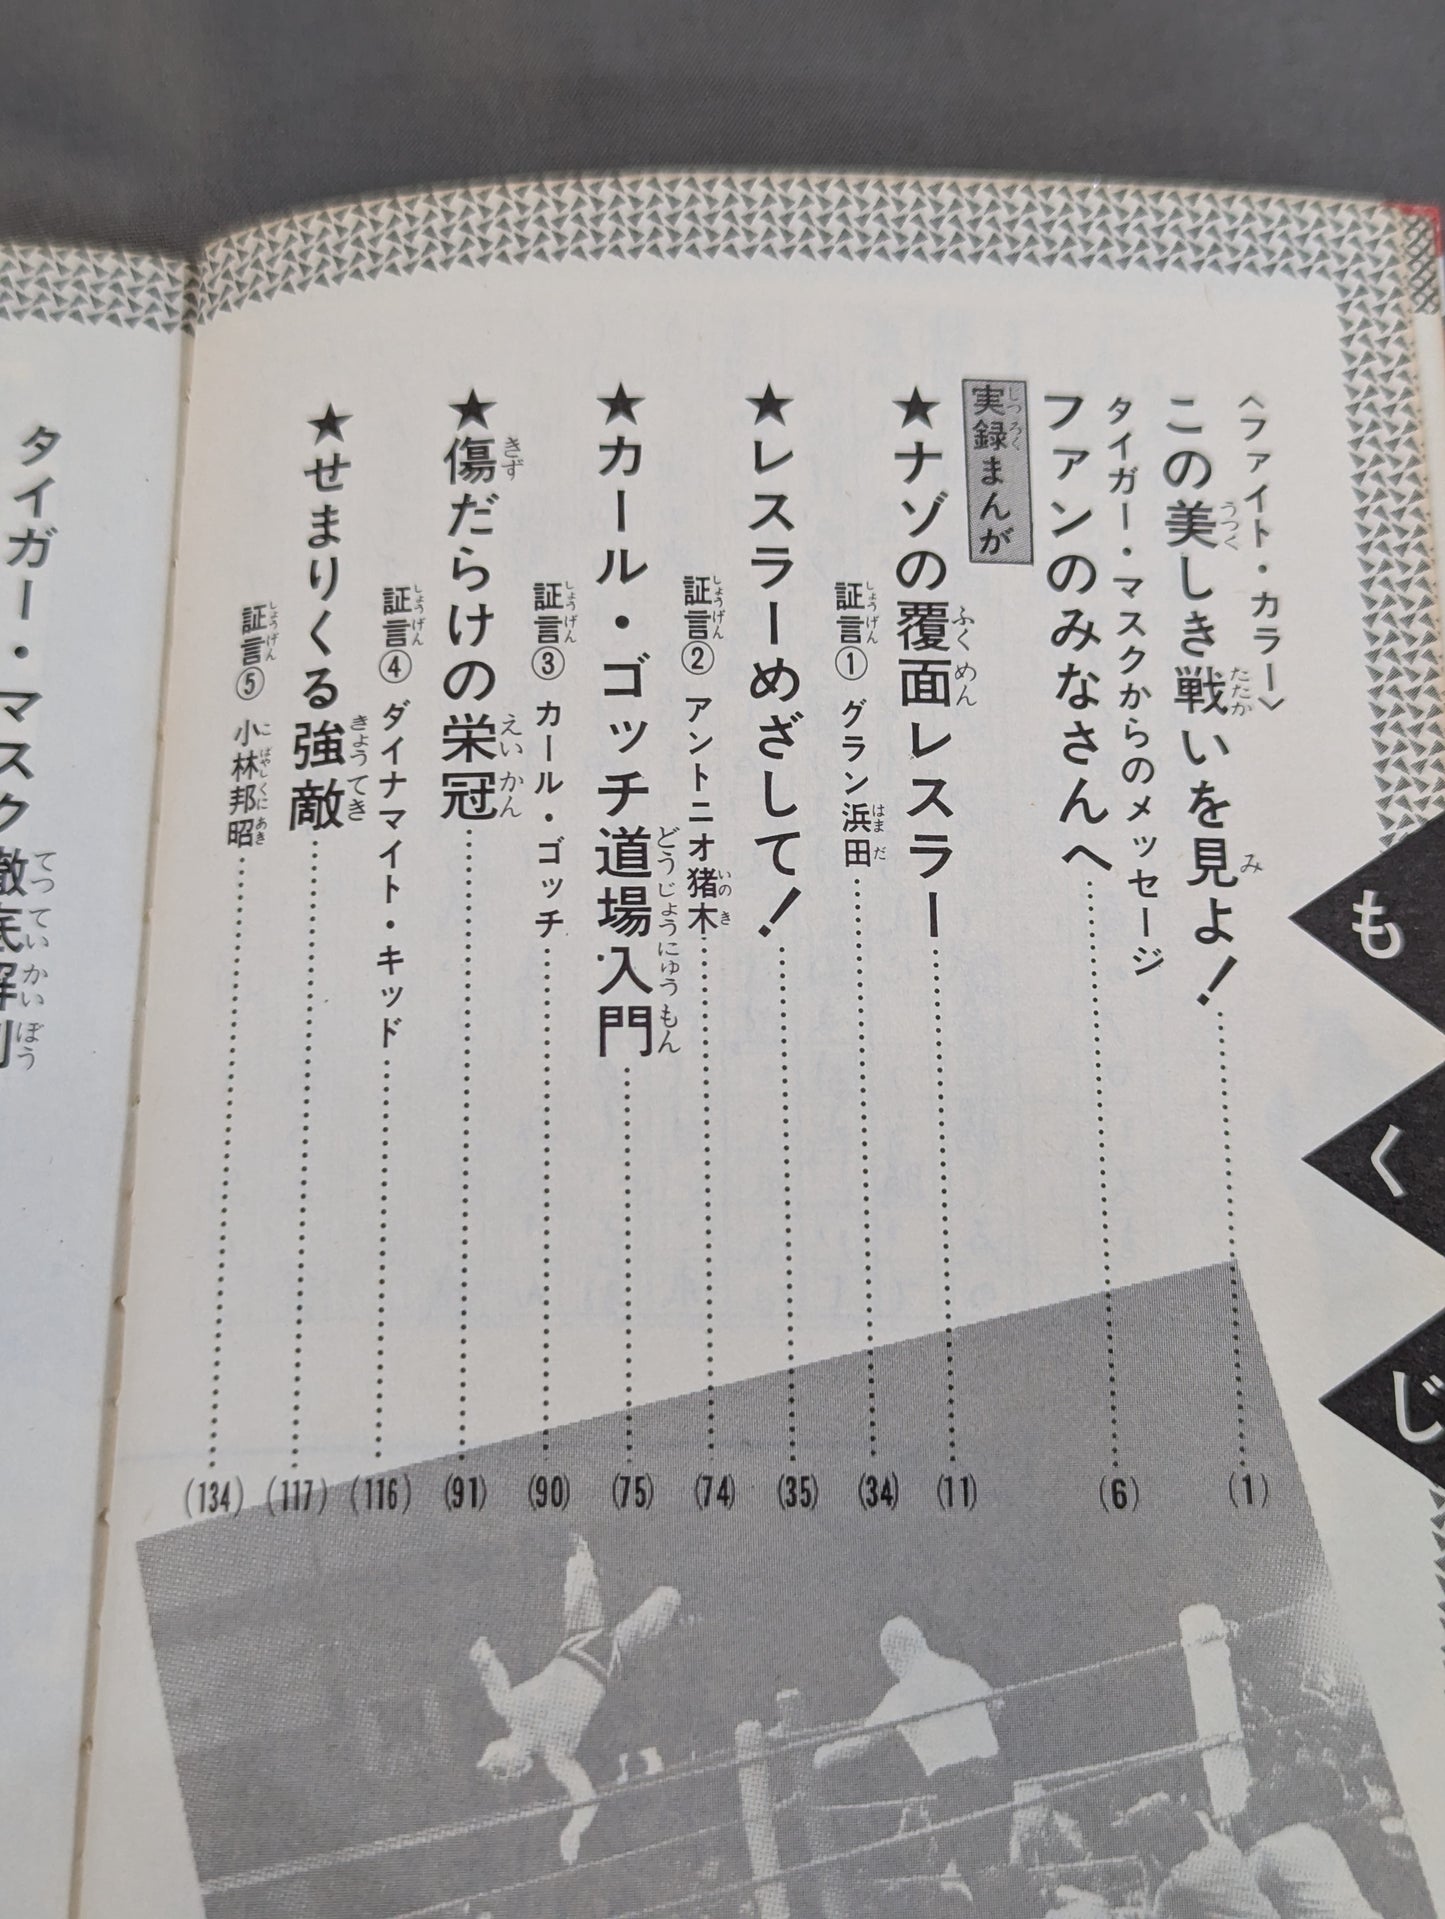 もくじ
〈ファイト・カラー〉
この美しき戦いを見よ！(1)
タイガー・マスクからのメッセージ
ファンのみなさんへ(6)
実録まんが
★ナゾの覆面レスラー(11)
証言① グラン浜田(34)
★レスラーめざして！(35)
証言② アントニオ猪木(74)
★カール・ゴッチ道場入門(75)
証言③ カール・ゴッチ(90)
★傷だらけの栄冠(91)
証言④ ダイナマイト・キッド(116)
★せまりくる強敵(117)
証言⑤ 小林邦昭(134)
タイガー・マスク徹底解剖